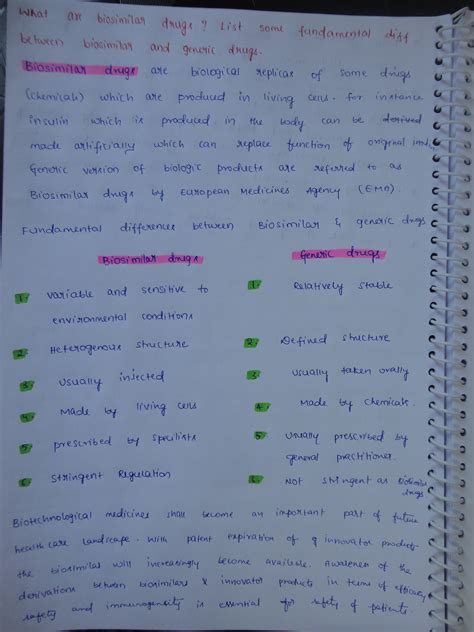 What are biosimilar drugs? List some fundamental diff
between biosimilar and generic drugs.
Biosimilar drugs are biological replicas of some drugs
(chemicals) which are produced in living cells. for instance
insulin which is produced in the body can be derived
made artificially which can replace function of original
Generic version of biologic products are referred to as
Biosimilar drugs by European Medicines Agency (EMA).
Fundamental differences between Biosimilar & generic drugs
Biosimilar drugs Generic drugs
1. variable and sensitive to environmental conditions
1. Relatively stable
2. Heterogenous structure
2. Defined structure
3. usually injected
3. usually taken orally
4. Made by living cells
4. Made by chemicals.
5. prescribed by specilists
5. usually prescribed by general practitioner.
6. Stringent Regulation
6. Not stringent as Biosimilar drugs
Biotechnological medicines shall become an important part of future
health care landscape. With patent expiration of innovator products
the biosimilars will increasingly become available. awareness of the
derivations between biosimilars & innovator products in terms of efficacy,
safety and immunogenicity is essential for safety of patients.